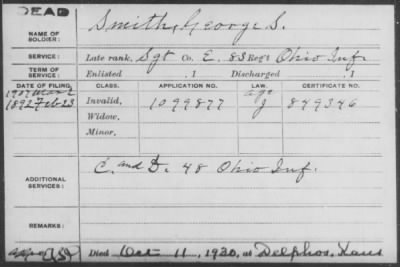 DEAD
NAME OF SOLDIER: Smith, George S.
SERVICE: Late rank, Sgt Co. E. 83 Reg't Ohio Inf.
TERM OF SERVICE: Enlisted , 1 Discharged , 1
DATE OF FILING. CLASS. APPLICATION NO. LAW. CERTIFICATE NO.
1907 Mar 2 age
1892 Feb 23 Invalid, 1099877 J 849346
Widow,
Minor,
ADDITIONAL SERVICES: C. and D. 48 Ohio Inf.
REMARKS:
Died Oct 11, 1920, at Delphos, Kans